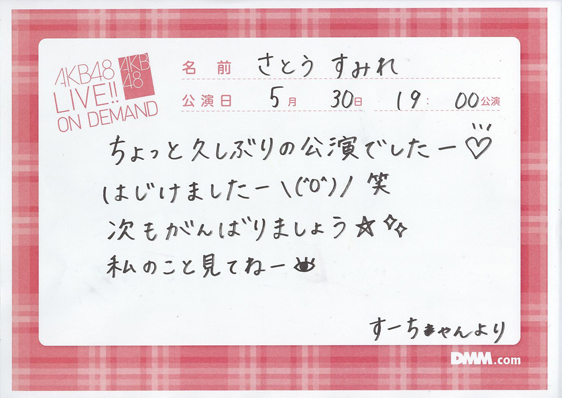 AKB48
LIVE!!
ON DEMAND
AKB
48
名前 さとう すみれ
公演日 5月 30日 19:00公演
ちょっと久しぶりの公演でしたー♡
はじけましたー\(^0^)/ 笑
次もがんばりましょう☆
私のこと見てねー
すーちゃんより
DMM.com